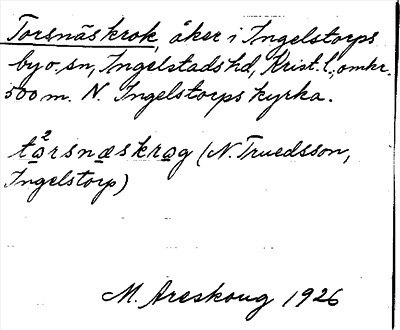 Torsnäskrok, åker i Ingelstorps
by o. sn, Ingelstads hd, Krist. l., omkr.
500 m. N. Ingelstorps kyrka.
tå²rsnæskrog (N. Truedsson,
Ingelstorp)
M. Areskoug 1926